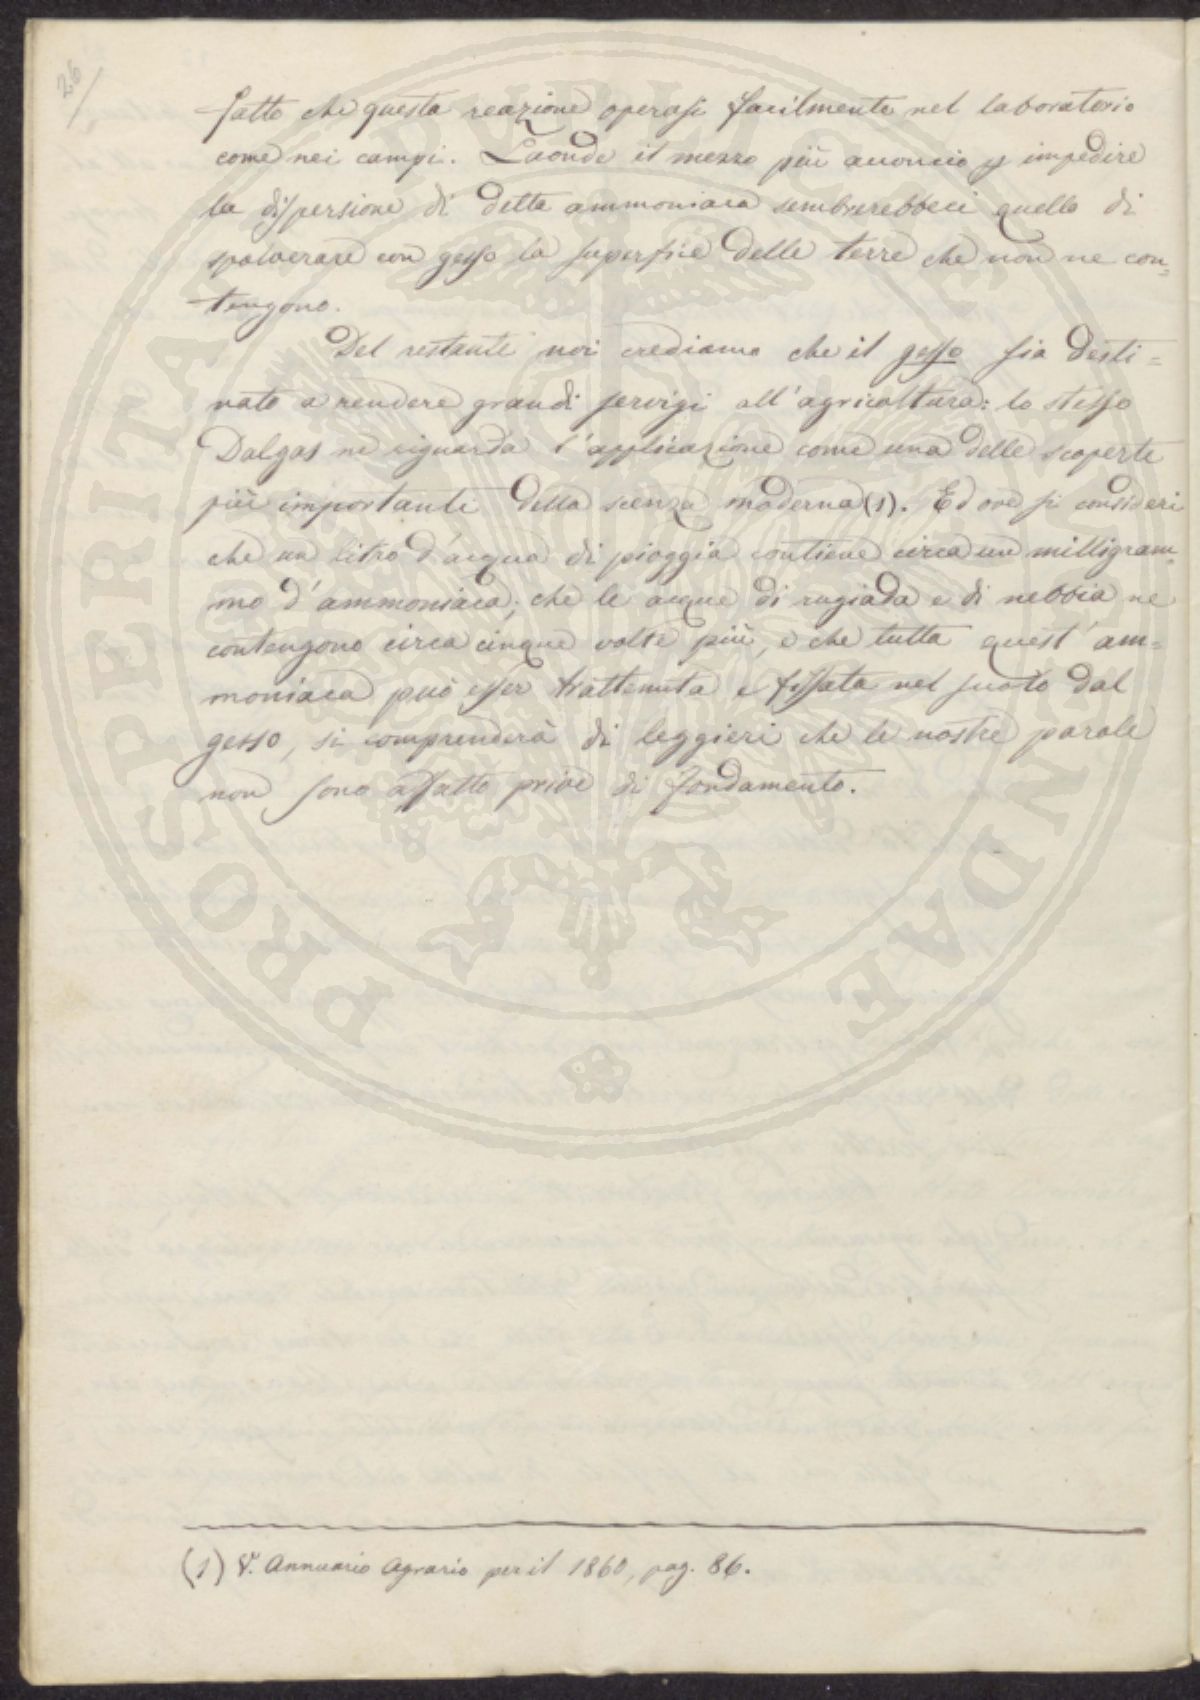 26
fatto che questa reazione operasi facilmente nel laboratorio
come nei campi. Laonde il mezzo più acconcio p impedire
la dispersione di detta ammoniaca sembrerebbeci quello di
spolverare con gesso la superficie delle terre che non ne con=
tengono.
Del restante noi crediamo che il gesso sia desti=
nato a rendere grandi servigi all'agricoltura: lo stesso
Dalgas ne riguarda l'applicazione come una delle scoperte
più importanti della scienza moderna (1). Ed ove si consideri
che un litro d'acqua di pioggia contiene circa un milligram=
mo d'ammoniaca; che le acque di rugiada e di nebbia ne
contengono circa cinque volte più, e che tutta quest'am=
moniaca può esser trattenuta e fissata nel suolo dal
gesso, si comprenderà di leggieri che le nostre parole
non sono affatto prive di fondamento.
(1) V. Annuario Agrario per il 1860, pag. 86.
PROSPERITATI PUBLICAE AUGENDAE